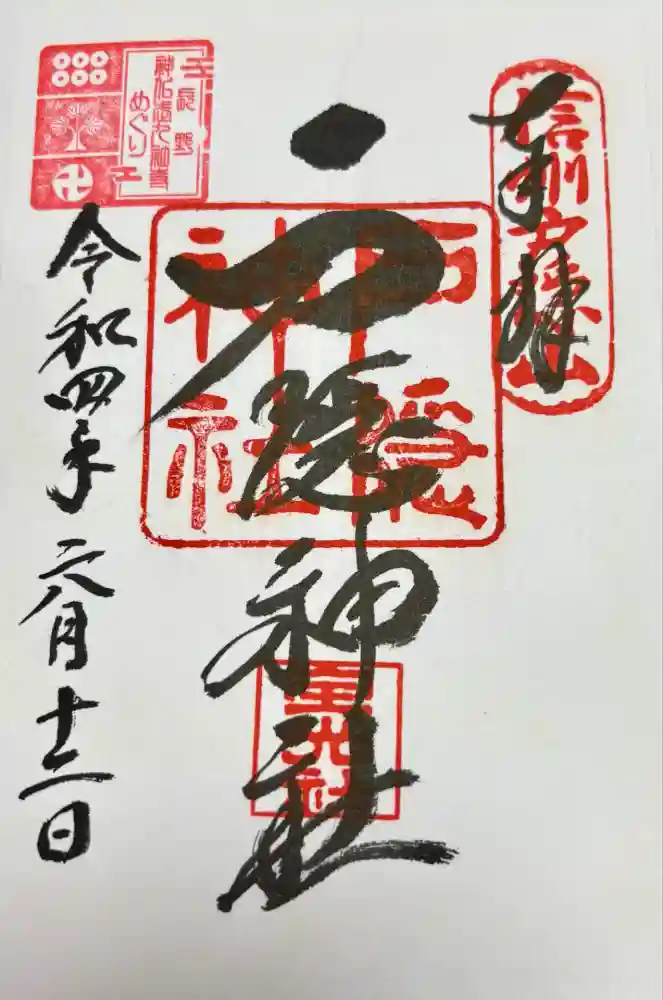 奉拝
信州戸隠山
戸隠神社
戸隠
神社
宝光社
令和四年六月十二日
長野
神仏
めぐり